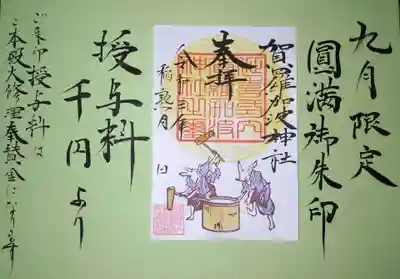 九月限定
圓満御朱印
賀羅加波神社
奉拝
稲熟月 日
授与料
千円より
ご朱印授与料は
ご本殿大修理奉賛金になります